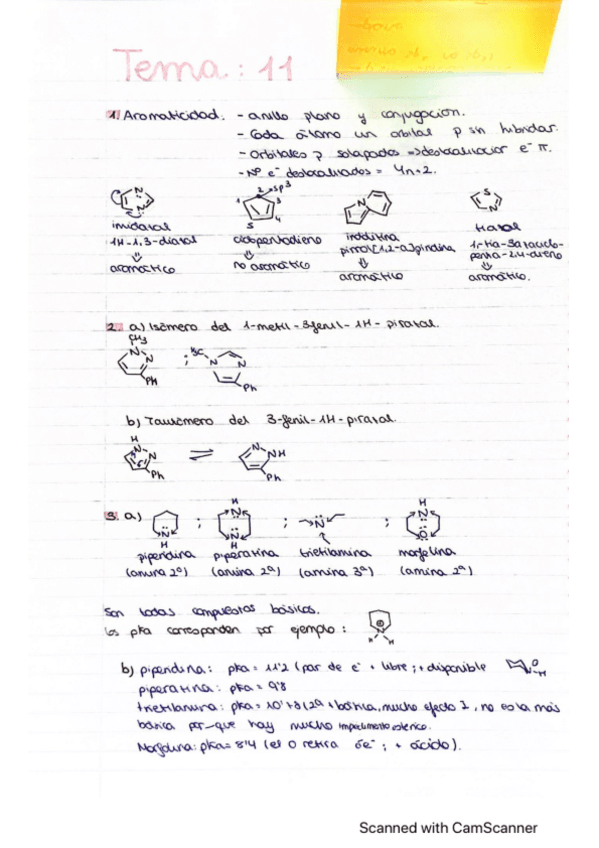 Tema: 11
1. Aromaticidad. - anillo plano y conjugación.
- Cada átomo un orbital p sin hibridar.
- Orbitales p solapados => deslocalización e⁻ π.
- Nº e⁻ deslocalizados = 4n+2.
N N H
1 2 sp³ 3 4 S
N
S N
imidazol ciclopentadieno indolizina tiazol
1H-1,3-diazol pirrol[1,2-a]piridina
aromático no aromático aromático aromático.
2. a) Isómero del 1-metil-3fenil-1H-pirazol.
CH3 N N Ph ; H3C N N Ph
b) Tautómero del 3-fenil-1H-pirazol.
H N N Ph ⇌ N NH Ph
3. a) N H ; H N N H ; N ; H N O
piperidina piperazina trietilamina morfolina
(amina 2ª) (amina 2ª) (amina 3ª) (amina 2ª)
Son todas compuestos básicos.
los pka corresponden por ejemplo: N H H
b) piperidina: pka = 11'2 (par de e⁻ + libre; + disponible
piperazina: pka = 9'8
trietilamina: pka = (2ª + básica, mucho efecto I, no es la más
básica por-que hay mucho impedimento estérico.
Morfolina: pka = 8'4 (el O retira e⁻; + ácido).
Scanned with CamScanner